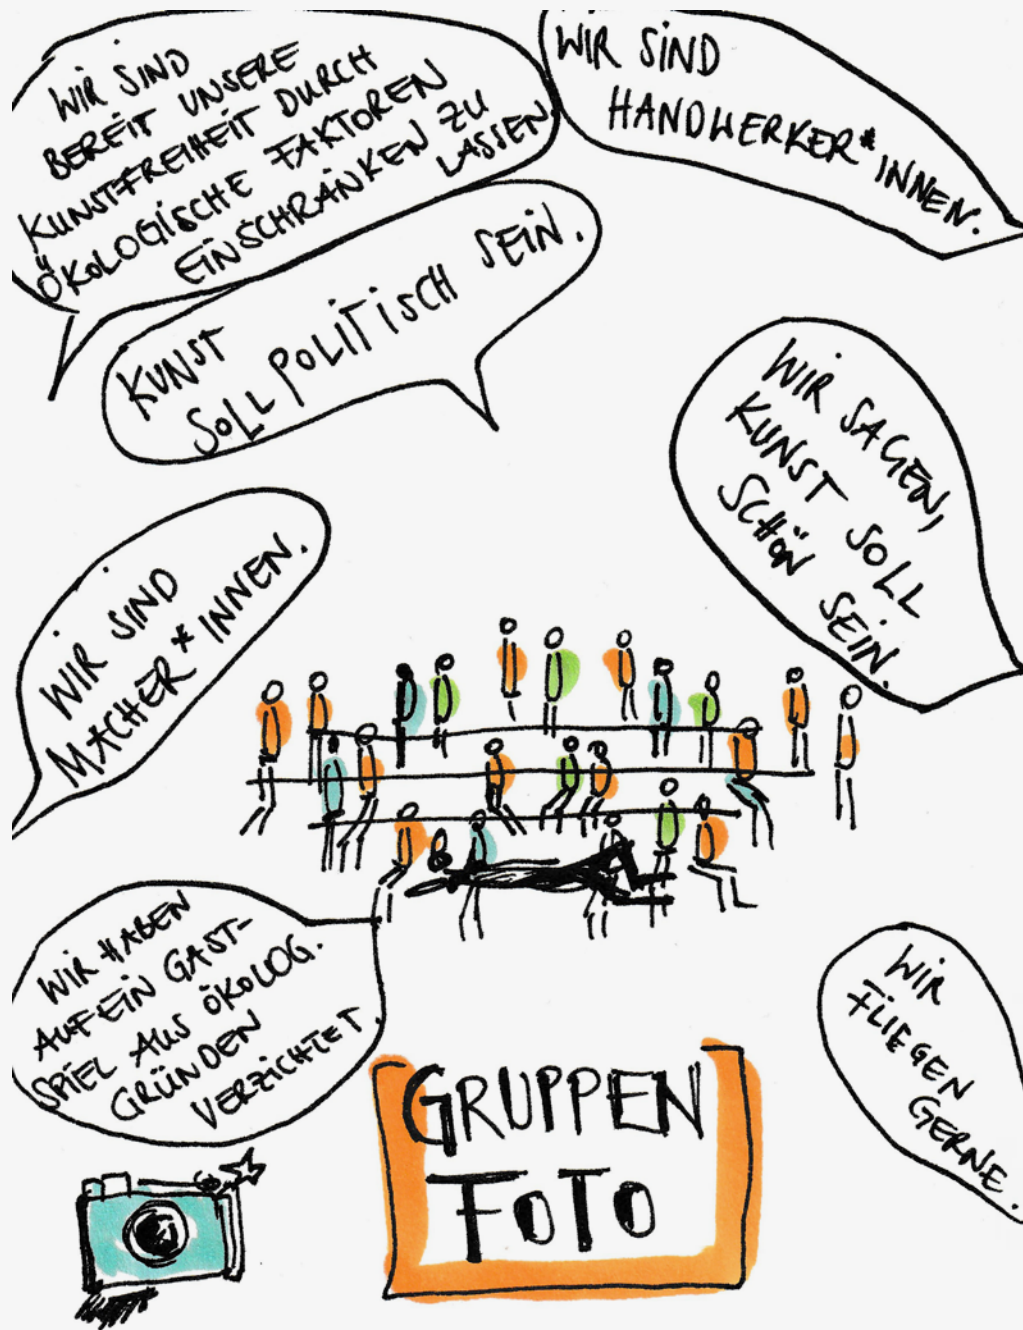 WIR SIND
BEREIT UNSERE
KUNSTFREIHEIT DURCH
ÖKOLOGISCHE FAKTOREN
EINSCHRÄNKEN ZU
LASSEN.
WIR SIND
HANDWERKER*INNEN.
KUNST
SOLL POLITISCH SEIN.
WIR SAGEN,
KUNST SOLL
SCHÖN SEIN.
WIR SIND
MACHER*INNEN.
WIR HABEN
AUF EIN GAST-
SPIEL AUS ÖKOLOG.
GRÜNDEN
VERZICHTET
WIR
FLIEGEN
GERNE.
GRUPPEN
FOTO